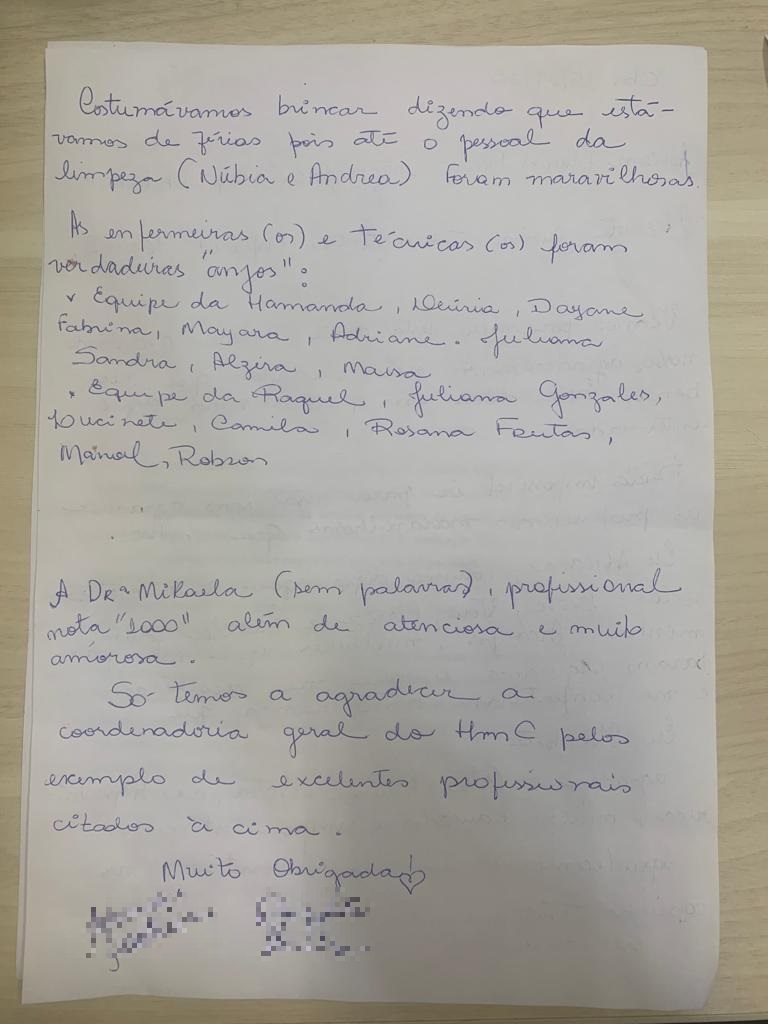 Costumávamos brincar dizendo que está-
vamos de férias pois até o pessoal da
limpeza (Núbia e Andrea) foram maravilhosas.
As enfermeiras (os) e técnicas (os) foram
verdadeiras "anjos":
Equipe da Hamanda, Dayane
Fabrina, Mayara, Adriane. Juliana
Sandra, Alzira, Maisa
Equipe da Raquel, Juliana Gonzales,
Lucinete, Camila, Rosana Freitas,
Robson
A Drª Mikaela (sem palavras), profissional
nota "1000" além de atenciosa e muito
amorosa.
Só temos a agradecer a
coordenadoria geral do HmC pelos
exemplo de excelentes profissionais
citados à cima.
Muito Obrigada!